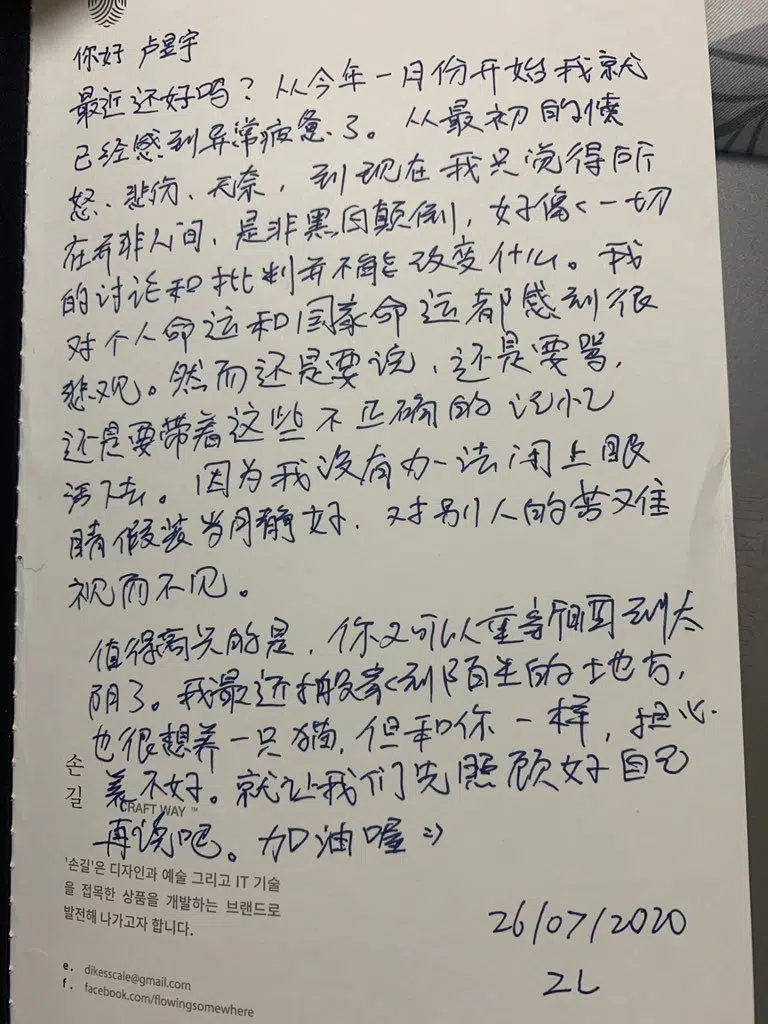 你好 卢昱宇
最近还好吗？从今年一月份开始我就
已经感到异常疲惫了。从最初的愤
怒、悲伤、无奈，到现在我只觉得所
在并非人间，是非黑白颠倒，好像一切
的讨论和批判并不能改变什么。我
对个人命运和国家命运都感到很
悲观。然而还是要说，还是要骂，
还是要带着这些不正确的记忆
活下去。因为我没有办法闭上眼
睛假装岁月静好，对别人的苦难
视而不见。
值得高兴的是，你又可以重新晒到太
阳了。我最近搬家到陌生的地方，
也很想养一只猫，但和你一样，担心
养不好。就让我们先照顾好自己
再说吧。加油喔 :)
26/07/2020
ZL
손
길
CRAFT WAY ™
'손길'은 디자인과 예술 그리고 IT 기술
을 접목한 상품을 개발하는 브랜드로
발전해 나가고자 합니다.
e. dikesscale@gmail.com
f. facebook.com/flowingsomewhere